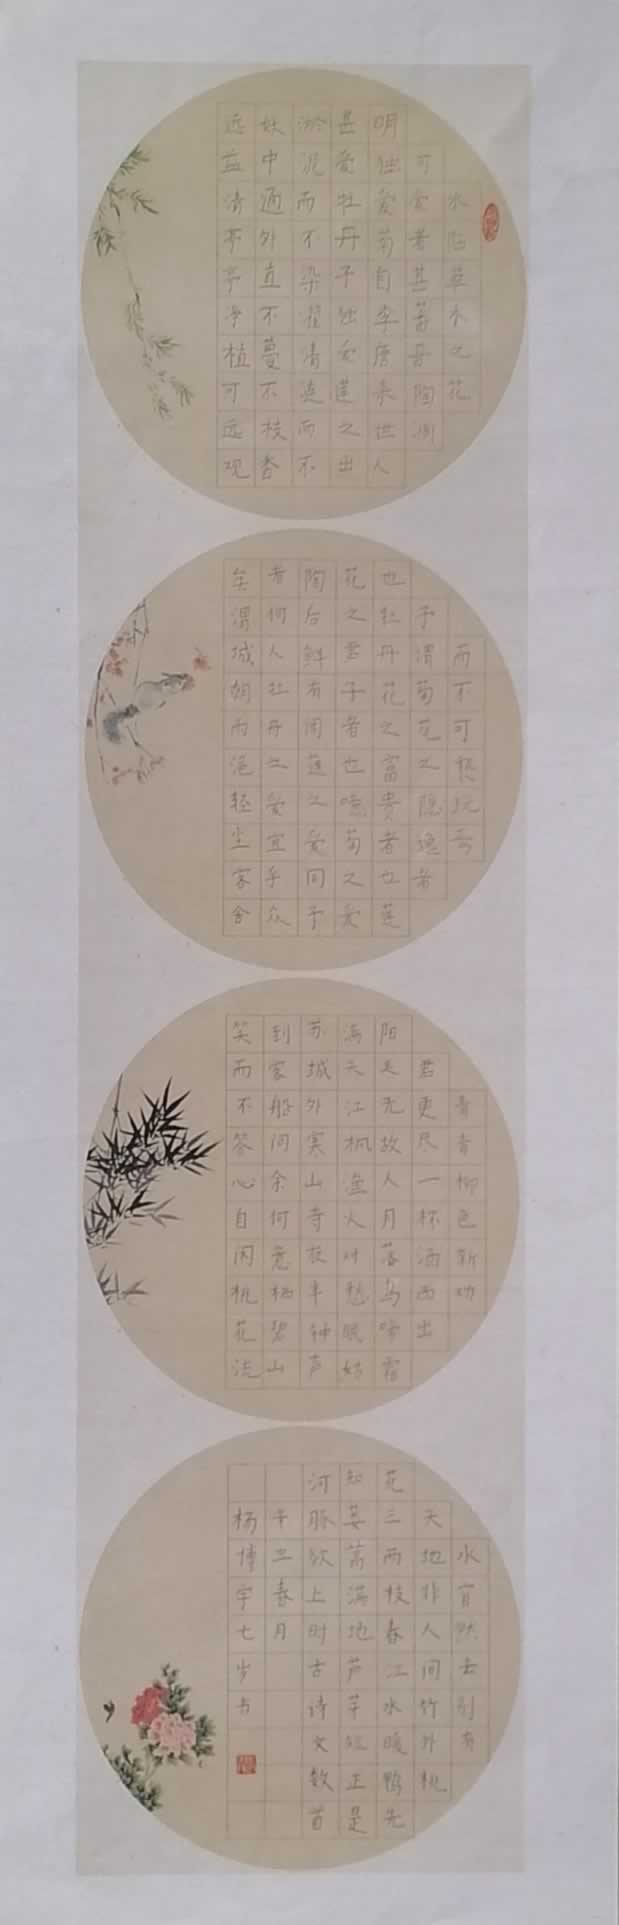 水陆草木之花
可爱者甚蕃晋陶渊
明独爱菊自李唐来世人
甚爱牡丹予独爱莲之出
淤泥而不染濯清涟而不
妖中通外直不蔓不枝香
远益清亭亭净植可远观
而不可亵玩焉
予谓菊花之隐逸者
也牡丹花之富贵者也莲
花之君子者也噫菊之爱
陶后鲜有闻莲之爱同予
者何人牡丹之爱宜乎众
矣渭城朝雨浥轻尘客舍
青青柳色新劝
君更尽一杯酒西出
阳关无故人月落乌啼霜
满天江枫渔火对愁眠姑
苏城外寒山寺夜半钟声
到客船问余何意栖碧山
笑而不答心自闲桃花流
水窅然去别有
天地非人间竹外桃
花三两枝春江水暖鸭先
知蒌蒿满地芦芽短正是
河豚欲上时古诗文数首
辛丑春月
杨博宇七岁书